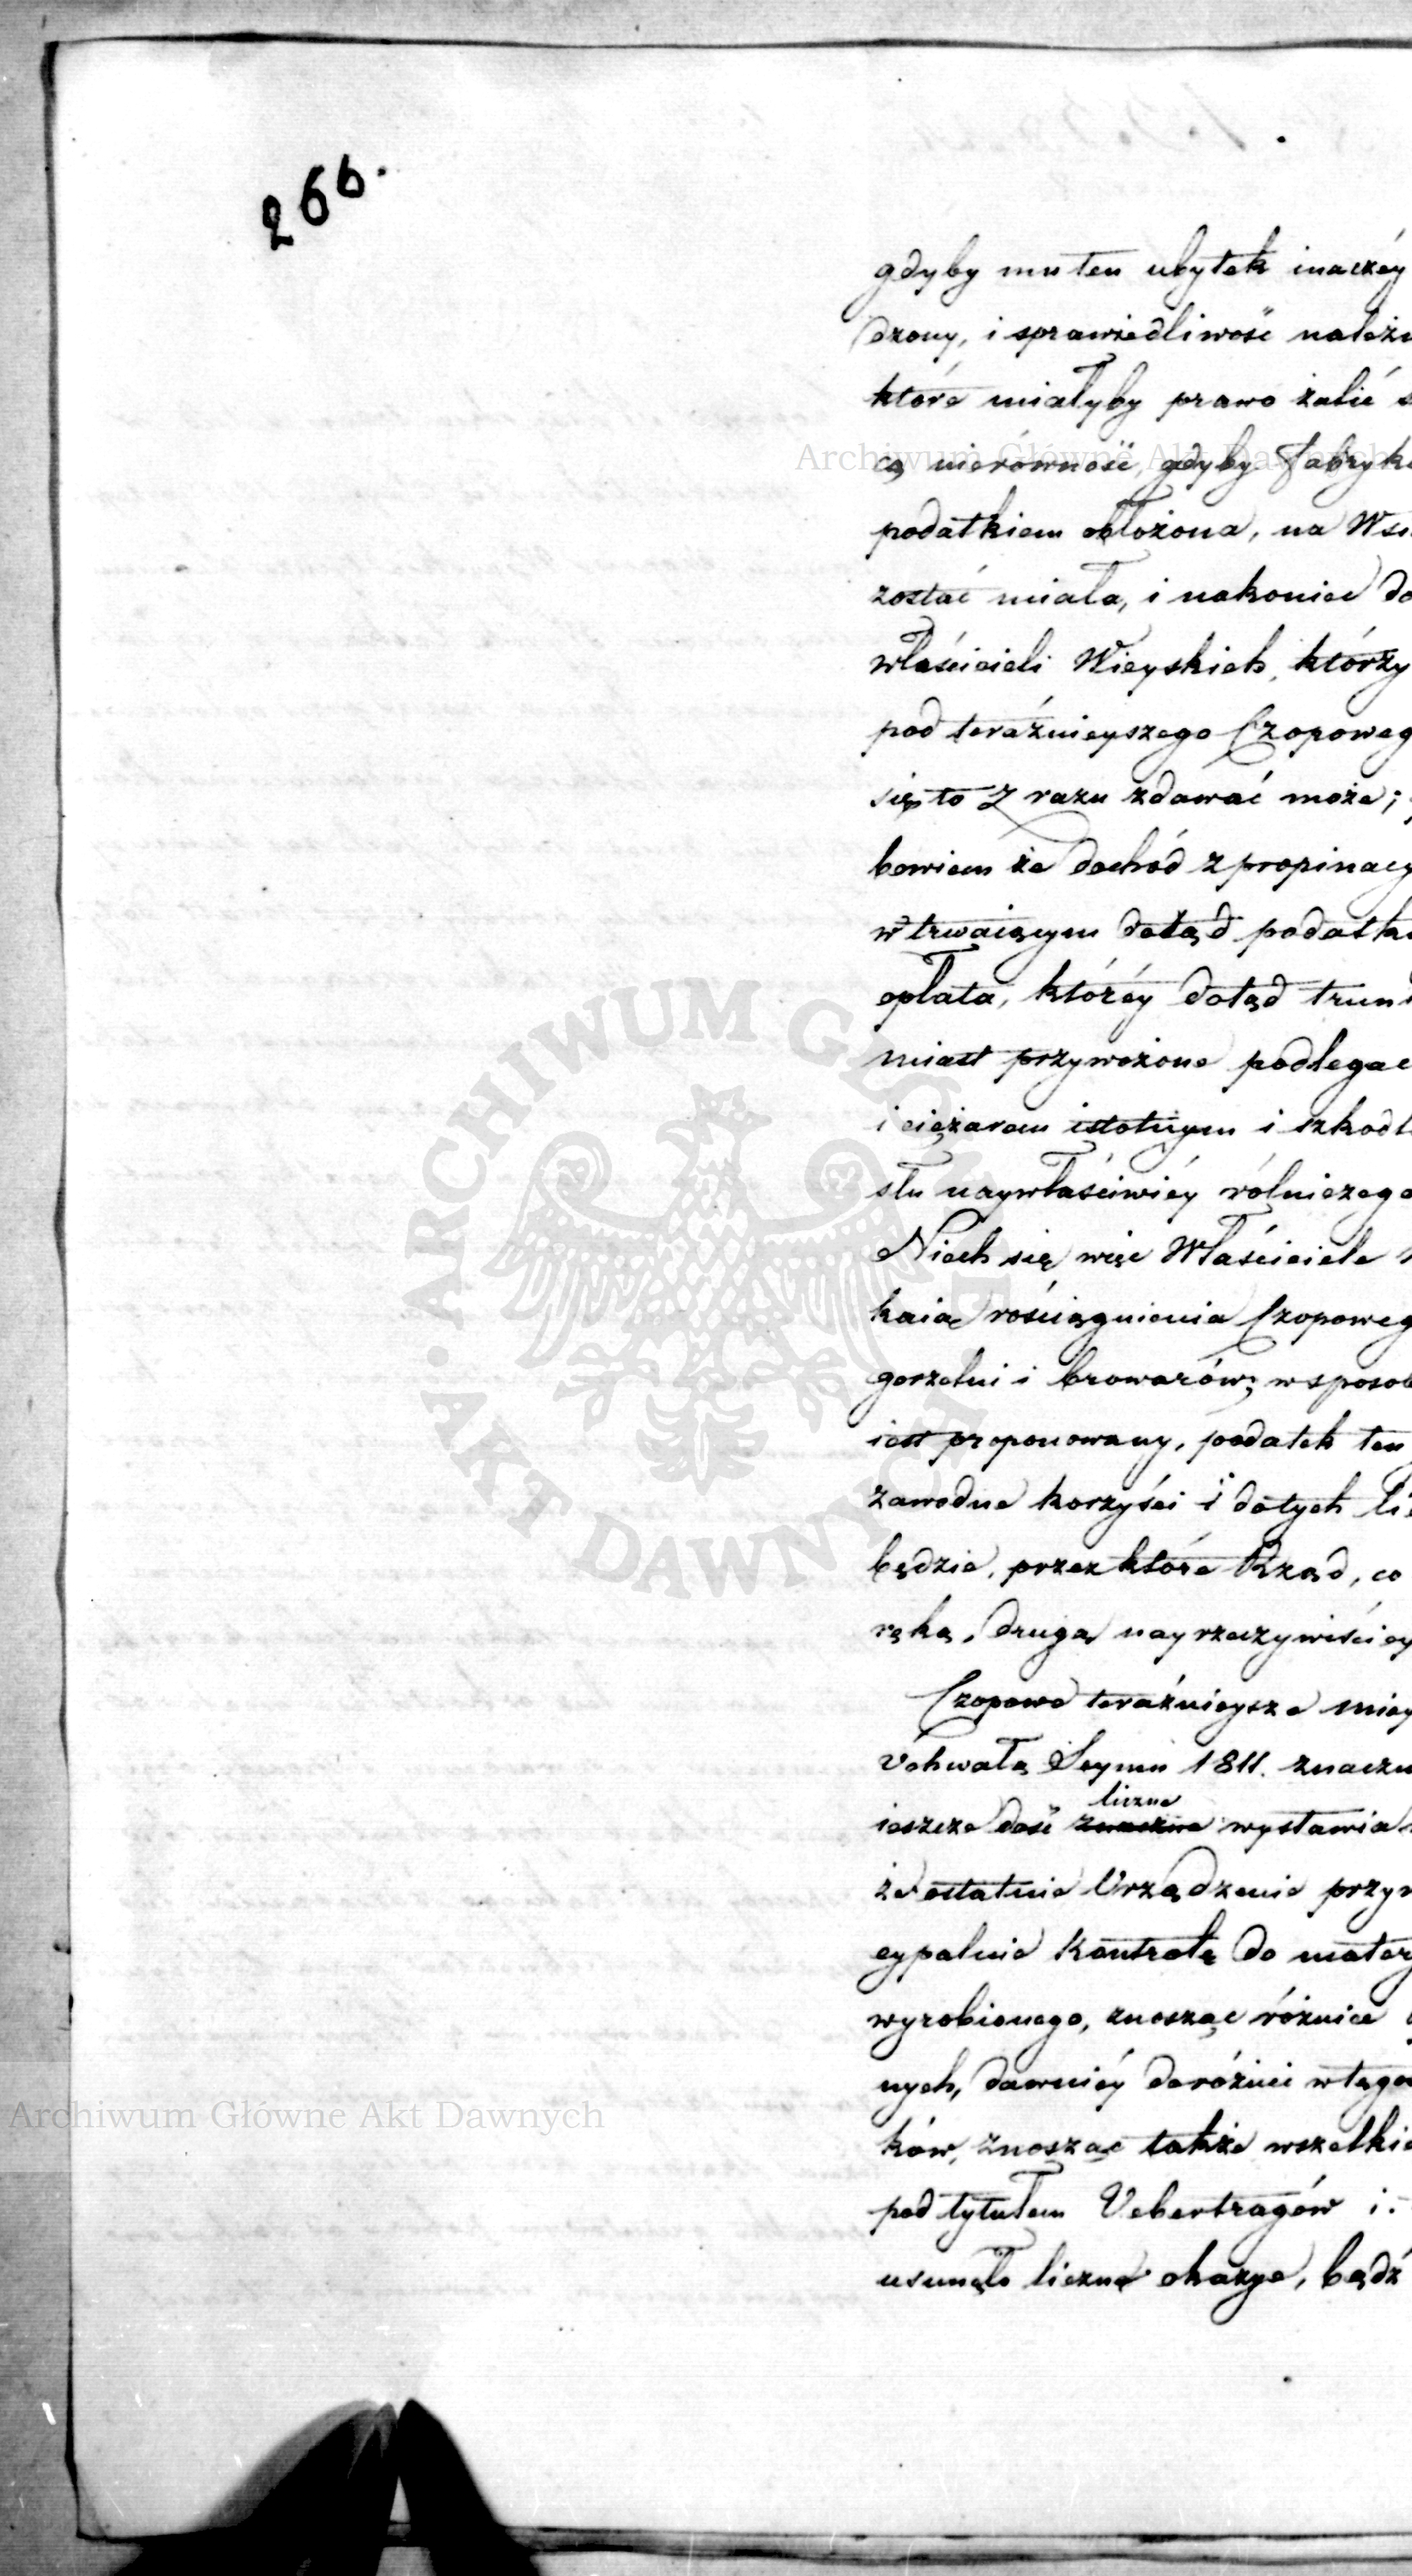 266.
gdyby mu ten ubytek inaczéy
dzony, i sprawiedliwość należn
które miałyby prawo żalić s
cą nierówność, gdyby Fabryk
podatkiem obłożona, na Wsi
zostać miała, i nakoniec do
właścicieli Wieyskich, którzy
pod teraźnieyszego Czopoweg
się to z razu zdawać może;
bowiem że dochód z propinacy
w trwaiącym dotąd podatk
opłata, któréy dotąd trun
miast przywożone podlegac
i ciężarem istotnym i szkodl
słu naywłaściwiéy rólniczego
Niech się więc Właściciele
kaią rościągnienia Czopoweg
gorzelni i browarów; w sposob
iest proponowany, podatek ten
zawodne korzyści i do tych li
będzie, przez które Rząd, co
ręką, drugą nayrzeczywiściey
Czopowe teraźnieysze miey
Uchwałą Seymu 1811. znaczn
ieszcze dość znaczne liczne wystawia
że ostatnie Urządzenie przyw
cypalnie Kontrolę do matery
wyrobionego, znosząc różnice
nych, dawniéy do różnic w tęgo
ków, znosząc także wszelkie
pod tytułem Vebertragów i:
usunęło liczne okazye, bądź
Archiwum Główne Akt Dawnych
Archiwum Główne Akt Dawnych
ARCHIWUM GŁÓWNE AKT DAWNYCH